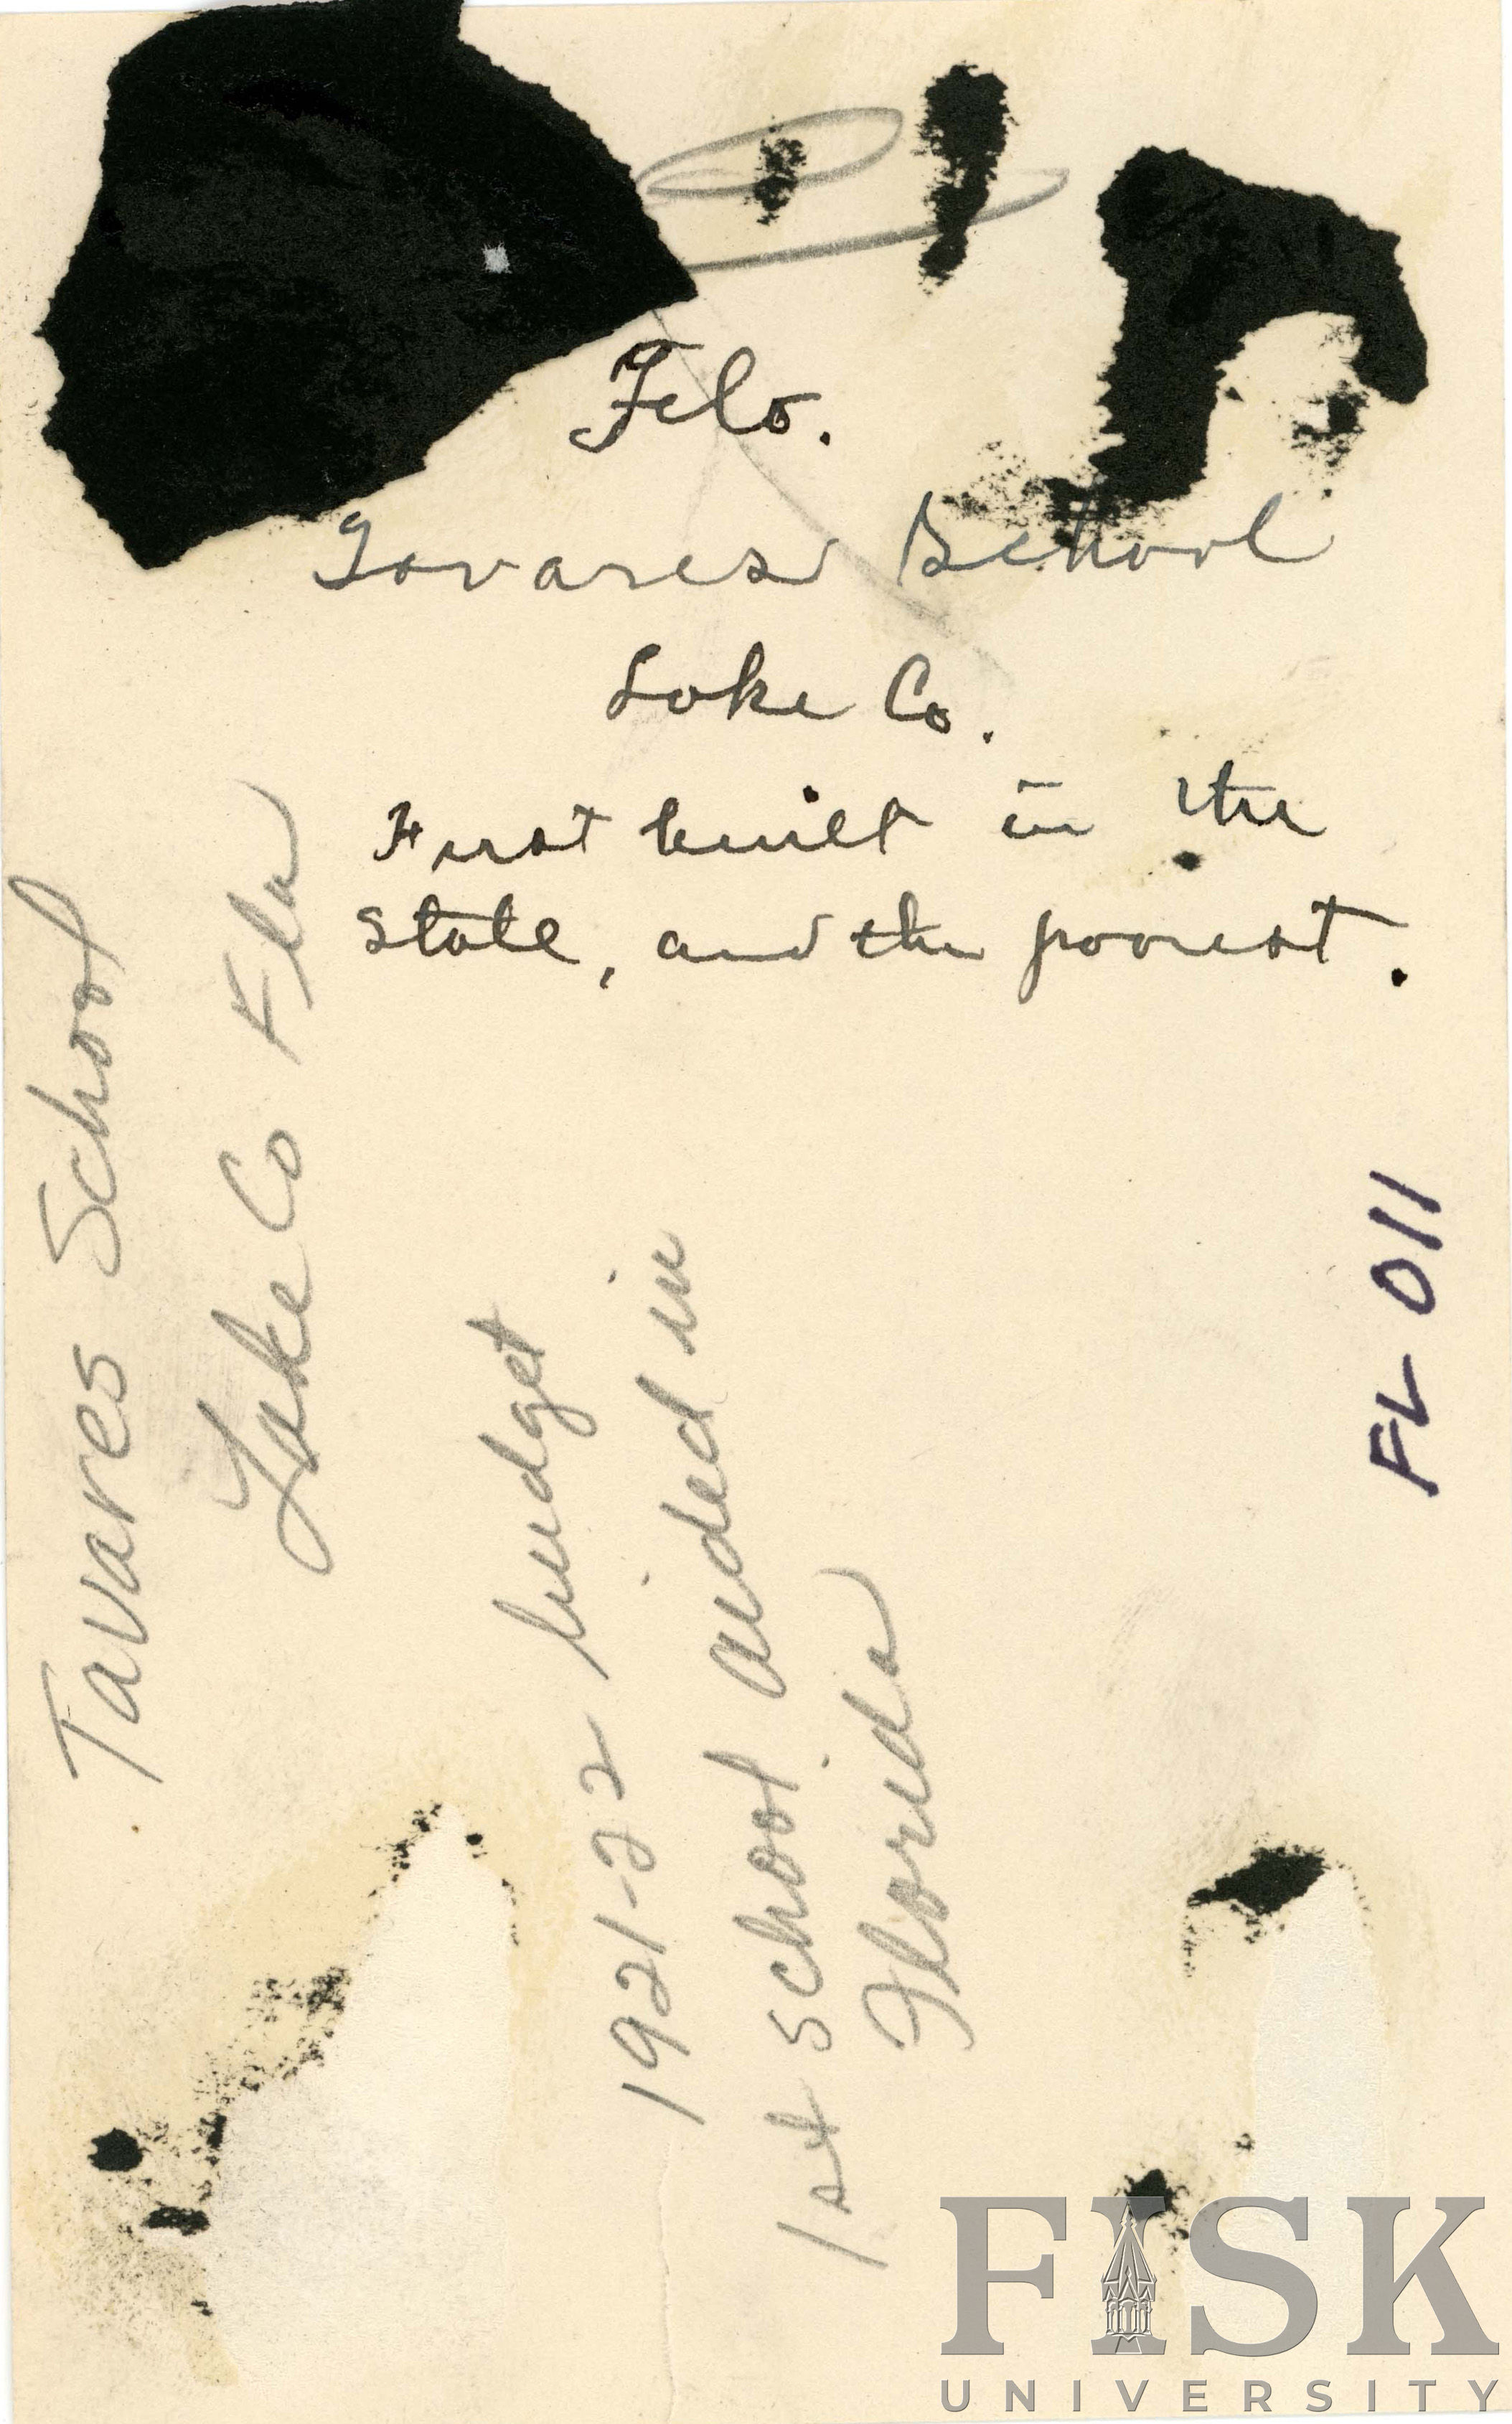 Fla.
Tavares School
Lake Co.
First built in the
State, and the poorest.
Tavares School
Lake Co Fla
1921-22 budget
1st school aided in
Florida
FL 011
FISK
UNIVERSITY